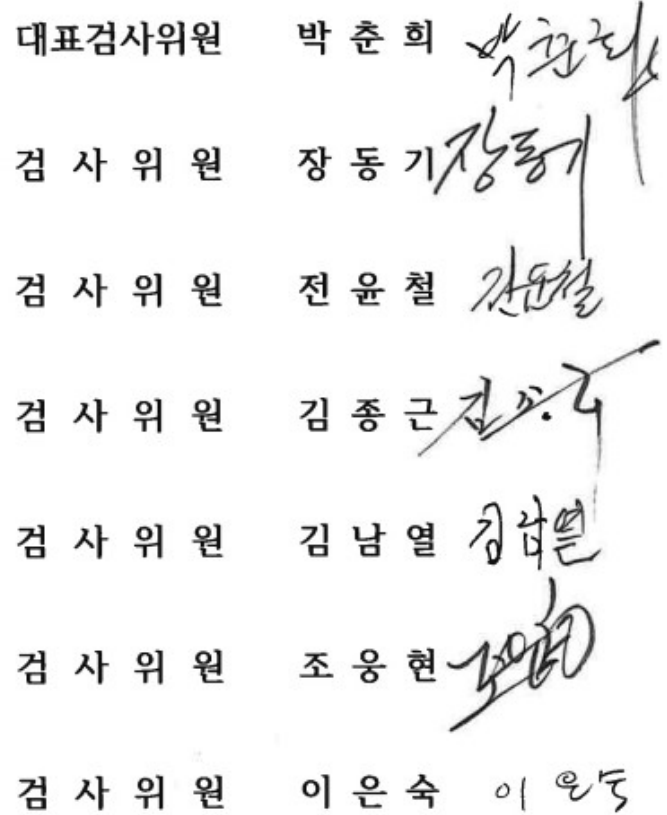 대표검사위원 박 춘 희 박춘희
검 사 위 원 장 동 기 장동기
검 사 위 원 전 윤 철 전윤철
검 사 위 원 김 종 근
검 사 위 원 김 남 열 김남열
검 사 위 원 조 웅 현
검 사 위 원 이 은 숙 이 은숙